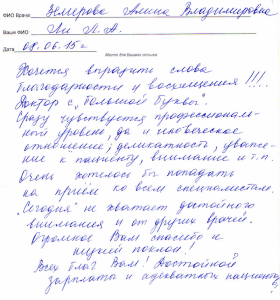 ФИО Врача Немерова Алина Владимировна
Ваше ФИО Ли Л. А.
Дата 08.06.15 г.
Место для Вашего отзыва
Хочется выразить слова
благодарности и восхищения!!!!
Доктор с "большой буквы".
Сразу чувствуется профессиональ-
ный уровень, да и человеческое
отношение; деликатность, уваже-
ние к пациенту, внимание и т.п.
Очень хотелось бы попадать
на приём ко всем специалистам.
"Сегодня" не хватает достойного
внимания и от других врачей.
Огромное Вам спасибо и
низкий поклон!
Всех благ Вам! Достойной
зарплаты и адекватных пациентов